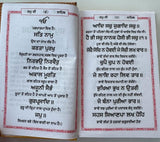 ੴ
ਸਤਿ ਨਾਮੁ
ਕਰਤਾ ਪੁਰਖੁ
ਨਿਰਭਉ ਨਿਰਵੈਰੁ
ਅਕਾਲ ਮੂਰਤਿ
ਅਜੂਨੀ ਸੈਭੰ
ਗੁਰਪ੍ਰਸਾਦਿ ॥
॥ ਜਪੁ ॥
ਆਦਿ ਸਚੁ ਜੁਗਾਦਿ ਸਚੁ ॥
ਹੈ ਭੀ ਸਚੁ ਨਾਨਕ ਹੋਸੀ ਭੀ ਸਚੁ ॥੧॥
ਸੋਚੈ ਸੋਚਿ ਨ ਹੋਵਈ
ਜੇ ਸੋਚੀ ਲਖ ਵਾਰ ॥
ਚੁਪੈ ਚੁਪ ਨ ਹੋਵਈ
ਜੇ ਲਾਇ ਰਹਾ ਲਿਵ ਤਾਰ ॥
ਭੁਖਿਆ ਭੁਖ ਨ ਉਤਰੀ
ਜੇ ਬੰਨਾ ਪੁਰੀਆ ਭਾਰ ॥
ਸਹਸ ਸਿਆਣਪਾ ਲਖ ਹੋਹਿ